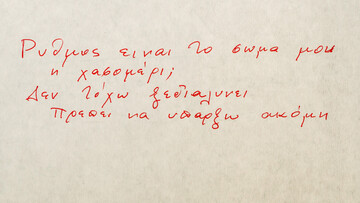 Ρυθμος ειναι το σωμα μου
η χασομέρι;
Δεν τόχω ξεδιαλυνει
Πρεπει να υπαρξω ακόμη